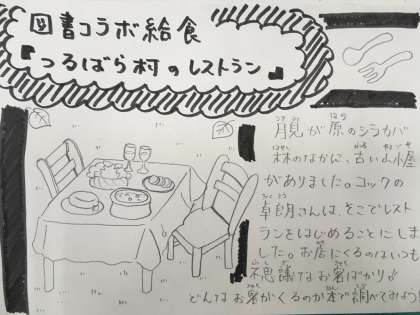 図書コラボ給食
『つるばら村のレストラン』
月見が原のシラカバ
林のなかに、古い山小屋
がありました。コックの
卓朗さんは、そこでレスト
ランをはじめることにしま
した。お店にくるのはいつも
不思議なお客ばかり♪
どんなお客がくるのか本で調べてみよう!